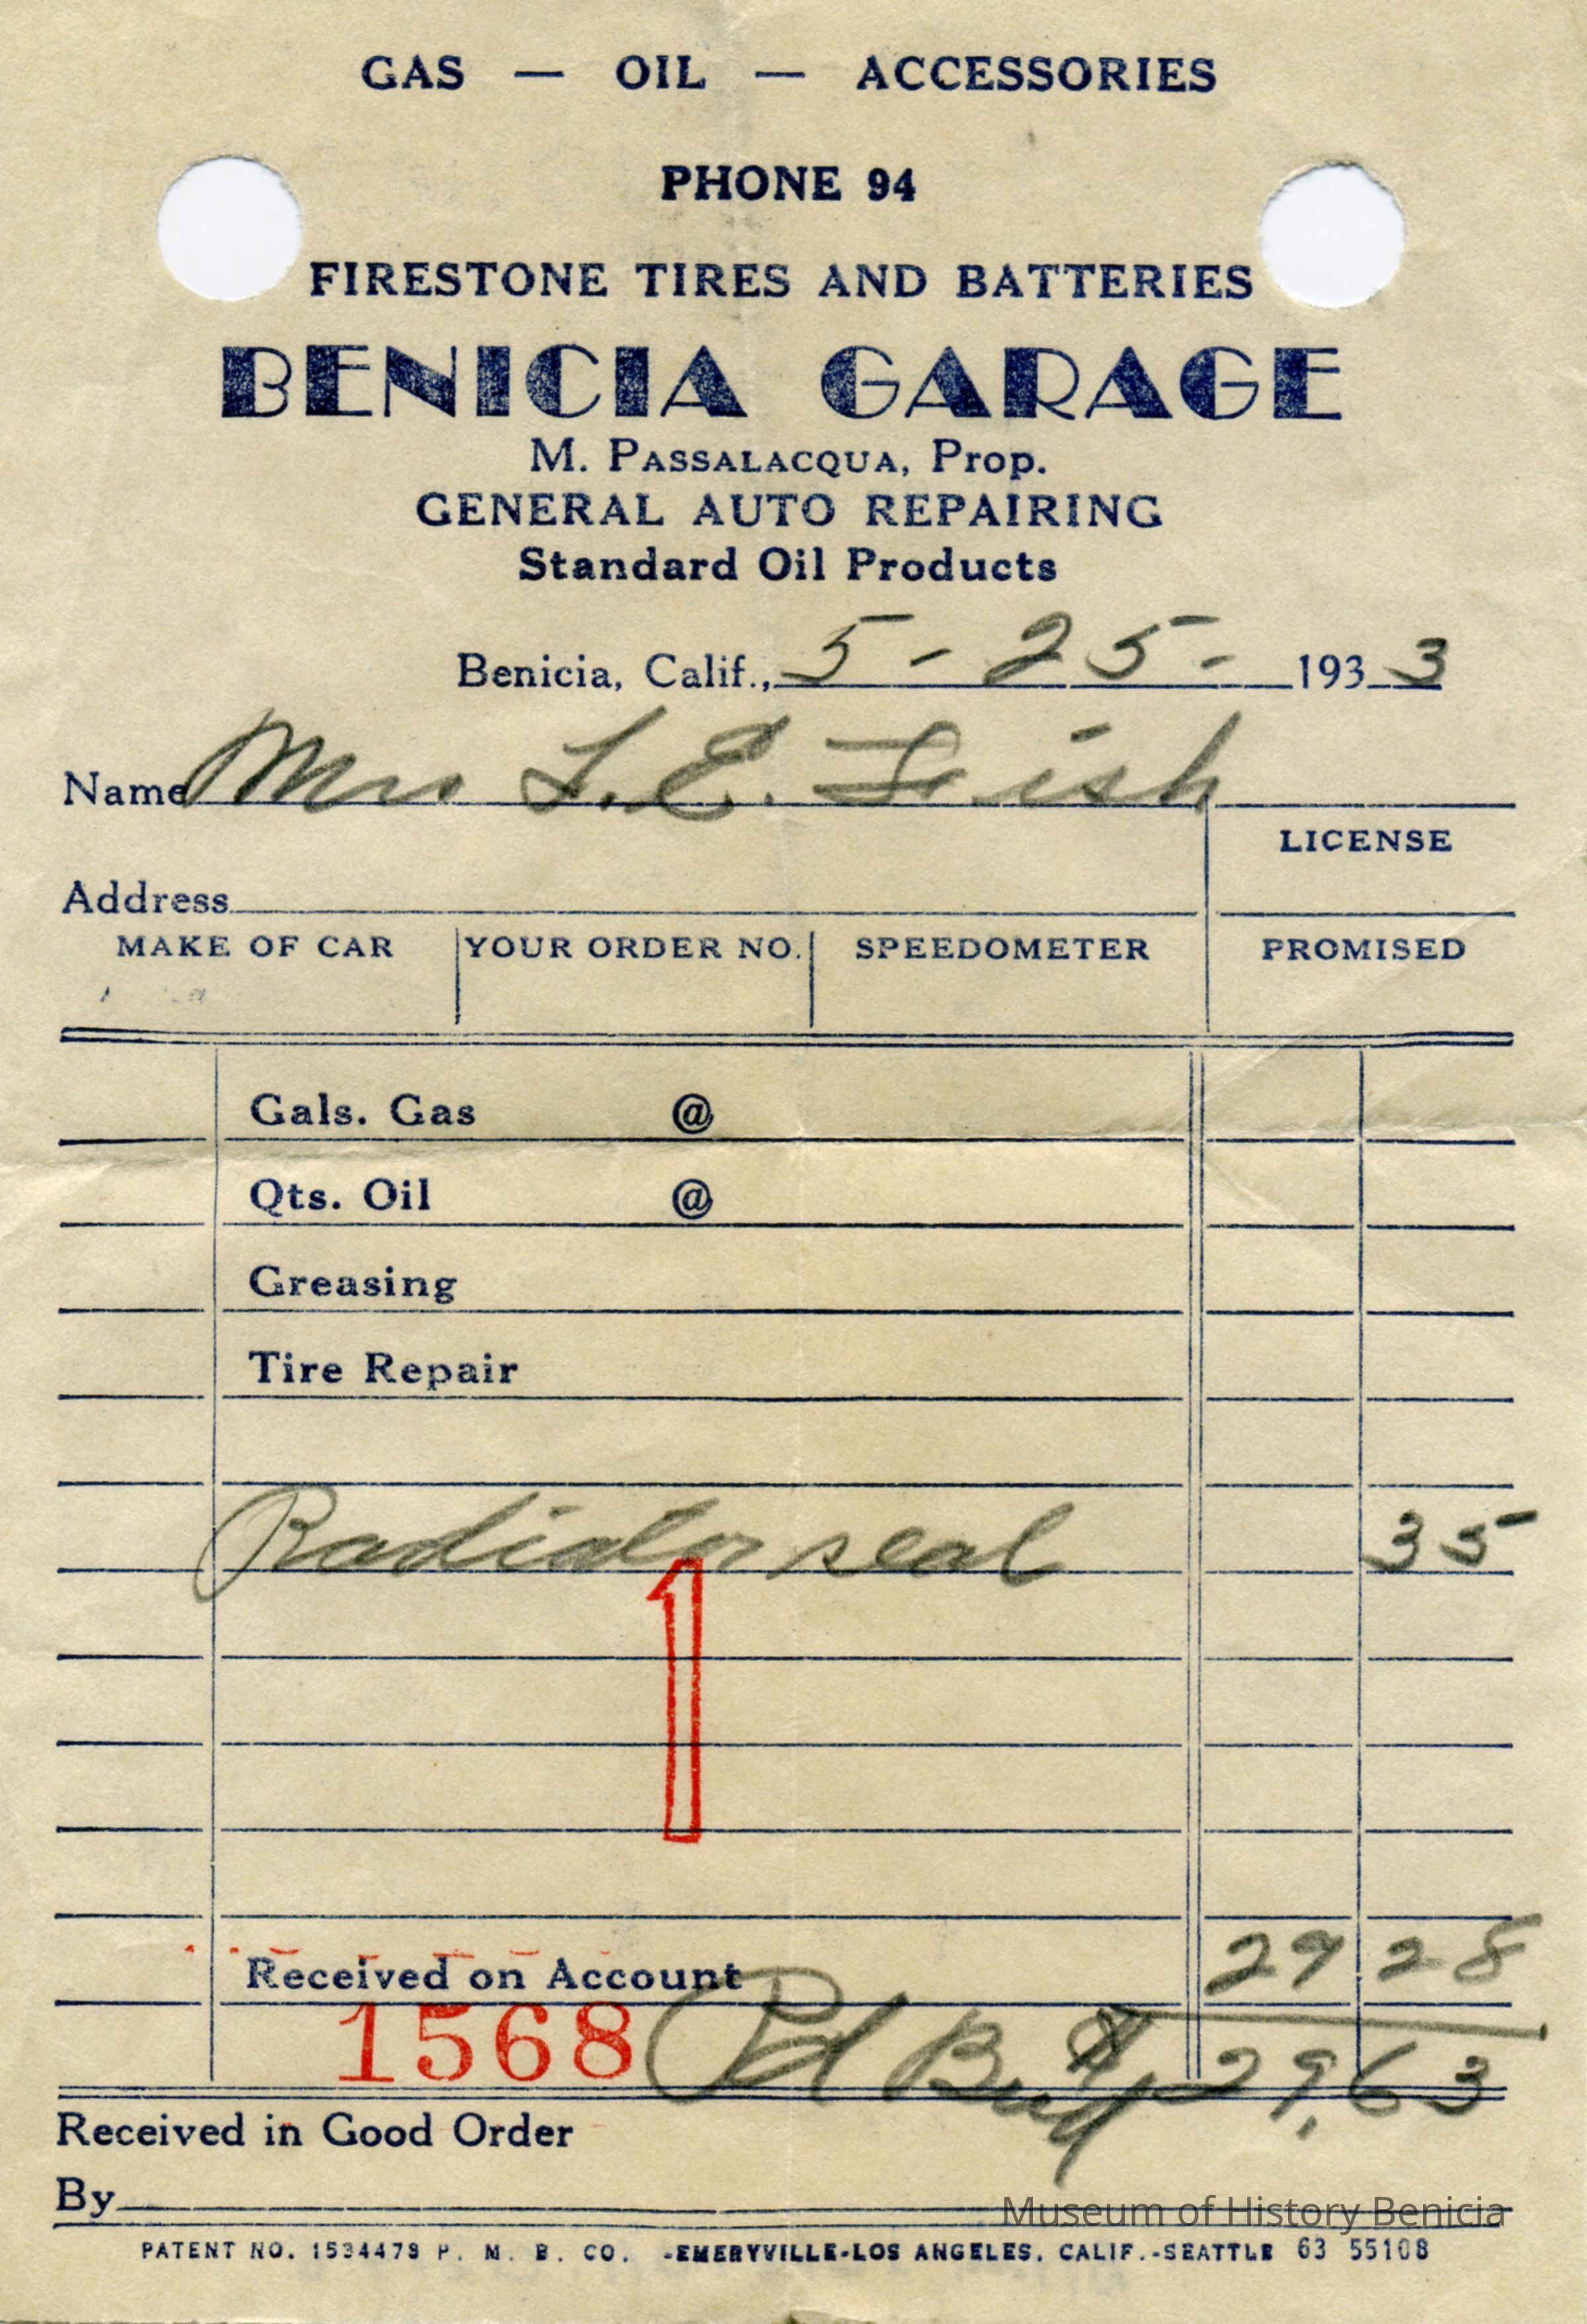 GAS — OIL — ACCESSORIES
PHONE 94
FIRESTONE TIRES AND BATTERIES
BENICIA GARAGE
M. PASSALACQUA, Prop.
GENERAL AUTO REPAIRING
Standard Oil Products
Benicia, Calif., 5 - 25 - 1933
Name Mrs L. E. Fish
LICENSE
Address
MAKE OF CAR YOUR ORDER NO. SPEEDOMETER PROMISED
Gals. Gas @
Qts. Oil @
Greasing
Tire Repair
Radiator seal 35
1
Received on Account 29 28
1568 Pd 29.63
Received in Good Order
By
Museum of History Benicia
PATENT NO. 1534479 P. M. B. CO. -EMERYVILLE-LOS ANGELES, CALIF.-SEATTLE 63 55108